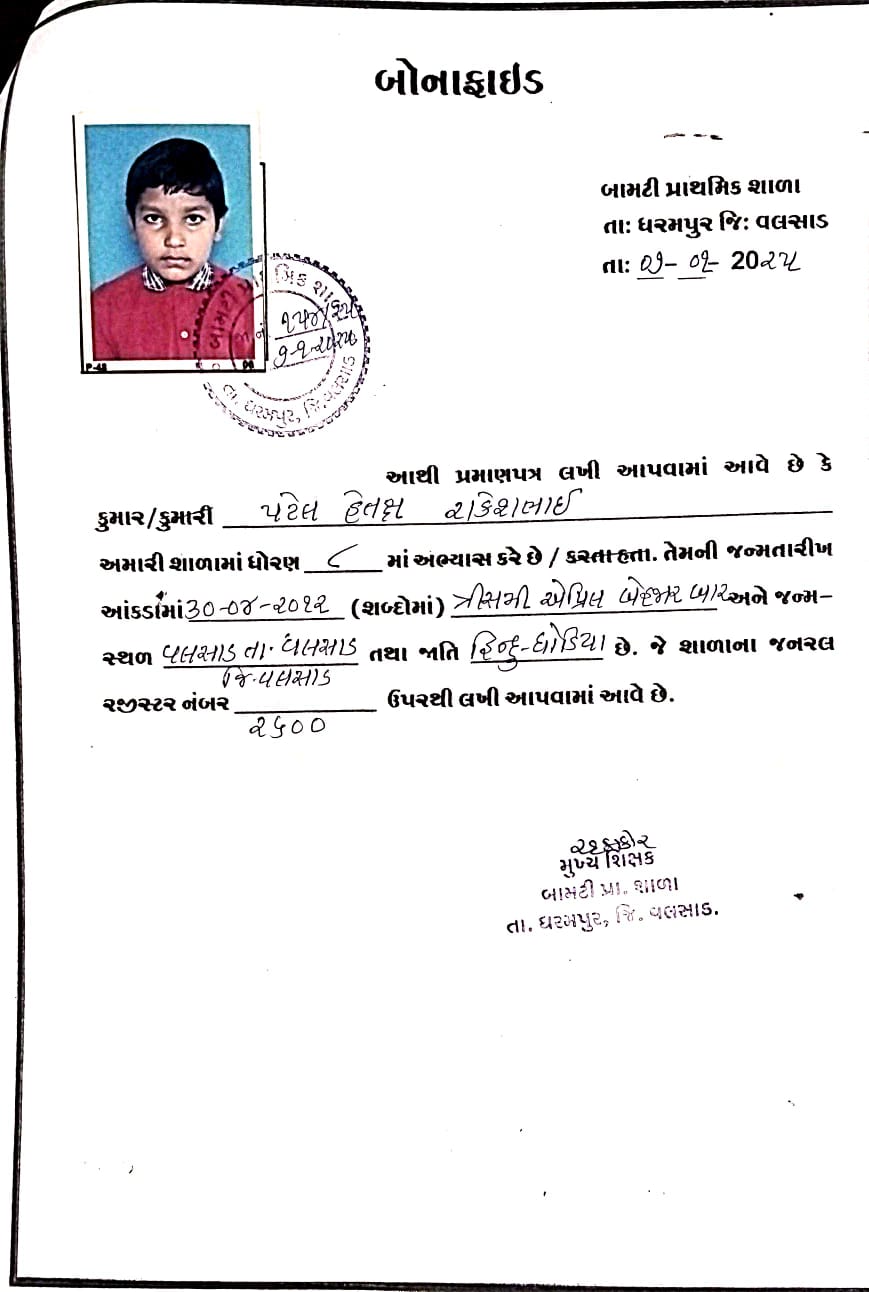 બોનાફાઇડ
બામટી પ્રાથમિક શાળા
તા: ધરમપુર જિ: વલસાડ
તા: ૦૭- ૦૧- 20૨૫
બામટી પ્રાથમિક શાળા
જા.નં. ૧૫૪/૨૫
૭-૧-૨૦૨૫
તા. ધરમપુર, જિ.વલસાડ
P-48 06
આથી પ્રમાણપત્ર લખી આપવામાં આવે છે કે
કુમાર/કુમારી પટેલ હેતક્ષ રાકેશભાઈ
અમારી શાળામાં ધોરણ ૮ માં અભ્યાસ કરે છે / કરતા હતા. તેમની જન્મતારીખ
આંકડામાં ૩૦-૦૪-૨૦૧૨ (શબ્દોમાં) ત્રીસમી એપ્રિલ બેહજાર બાર અને જન્મ-
સ્થળ વલસાડ તા. વલસાડ તથા જાતિ હિન્દુ-ધોડિયા છે. જે શાળાના જનરલ
જિ.વલસાડ
રજીસ્ટર નંબર ઉપરથી લખી આપવામાં આવે છે.
૨૬૦૦
મુખ્ય શિક્ષક
બામટી પ્રા. શાળા
તા. ધરમપુર, જિ. વલસાડ.